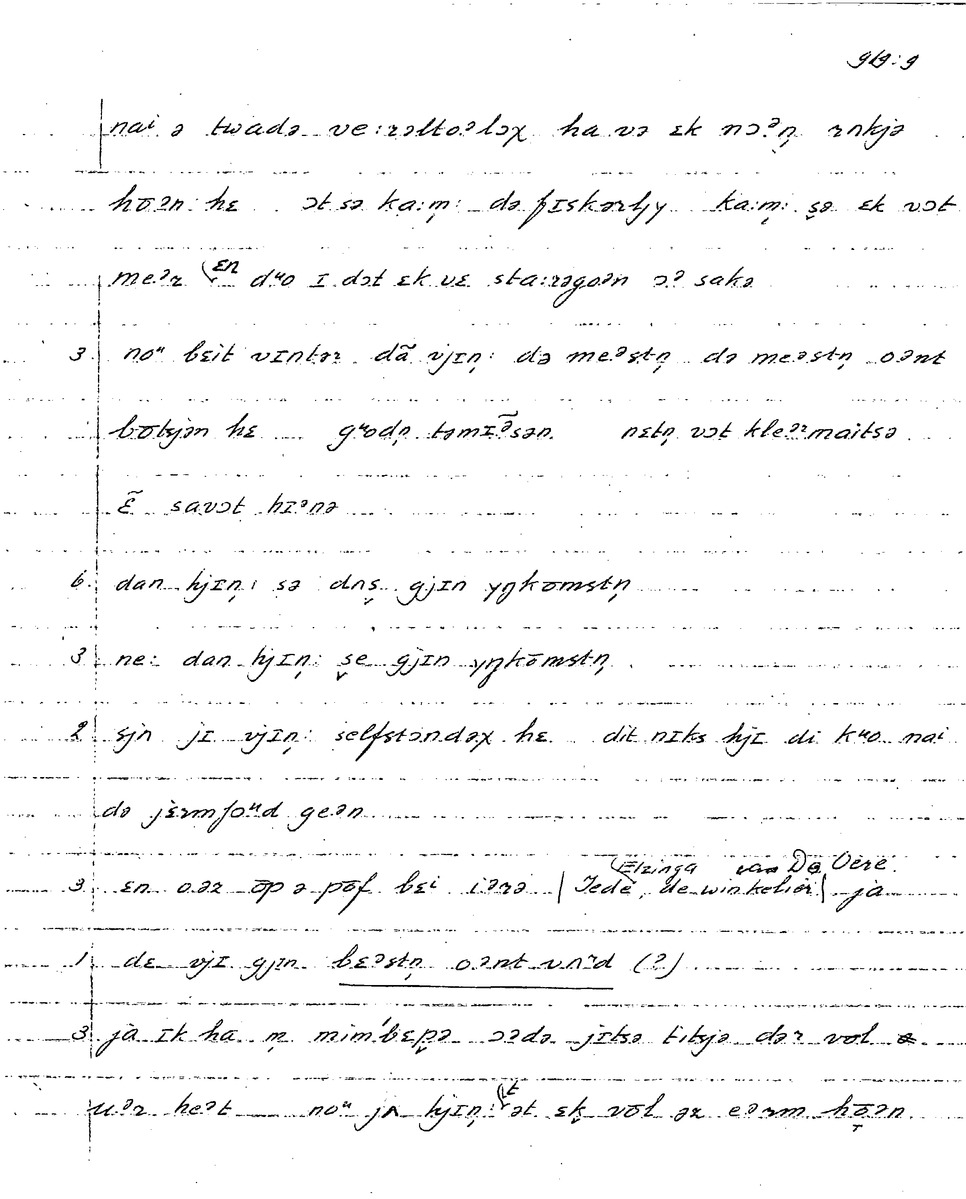 919:9
nai ə twadə ve:rəltoᵊləχ ha və ɛk nɔˀn̩ rnkjə
hōən hɛ ɔt sə ka:m̩: də fɪskərtjy ka:m̩: s̬ə ɛk vɔt
meᵊr ɛn dᵘo ɪ dɔt ɛk vɛ sta:rəgoən ɔˀ sakə
3. noᵘ bɛit vɪntər dã vjɪn̩: də meᵊstn̩ də meᵊstn̩ oənt
bōtjən hɛ gᵘodn̩ təmɪ̃ᵊsən nɛtn̩ vɔt kleᵊrmaitsə
ɛ̃ savɔt hɪᵊnə
6. dan hjɪn̩: sə dʌs̬ gjɪn yŋkomstn̩
3 ne: dan hjɪn̩: s̬e gjɪn yŋkōmstn̩
2 sjn jɪ vjɪn̩: selfstɔndəχ hɛ dit nɪks hjɪ di kᵘo nai
də jɛrmfoᵘd geən
3. ɛn oər ōp ə pōf bɛi iərə (Jedè, Elzinga van De Oere. de winkelier) ja
1. dɛ vjɪ gjɪn bɛᵊstn̩ oənt vʌʳd (?)
3 ja ɪk ha m̩ mim'bɛp̬ə ɔədə jɪtsə titjə dər vol
uər heᵊt noᵘ jʌ hjɪn̩: t ət ɛk̬ vōl ər eərm hōən